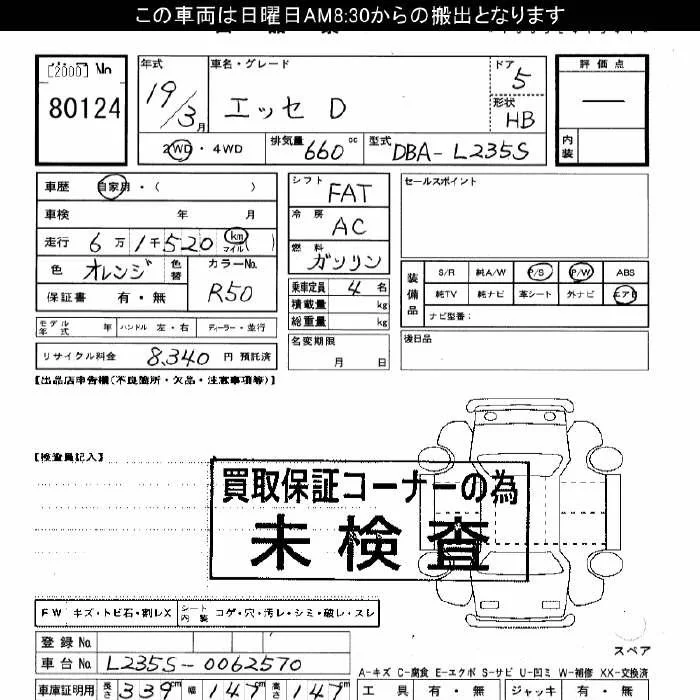 この車両は日曜日AM8:30からの搬出となります
[2000] No
80124
年式 車名・グレード ドア 5 評価点
19/3月 エッセ D 形状 HB
2WD・4WD 排気量 660 cc 型式 DBA-L235S 内装
車歴 自家用・( )
車検 年 月
走行 6万1千520 km マイル( )
色 オレンジ 色替 カラーNo. R50
保証書 有・無
モデル年式 年 ハンドル 左・右 ディーラー・並行
リサイクル料金 8,340 円 預託済
シフト FAT
冷房 AC
燃料 ガソリン
乗車定員 4 名
積載量 kg
総重量 kg
名変期限 月 日
セールスポイント
装備品 S/R 純A/W P/S P/W ABS
純TV 純ナビ 革シート 外ナビ エアB
ナビ型番:
後日品
【出品店申告欄(不良箇所・欠品・注意事項等)】
【検査員記入】
買取保証コーナーの為
未検査
FW キズ・トビ石・割レX シート内装 コゲ・穴・汚レ・シミ・破レ・スレ
登録No.
車台No. L235S-0062570
車庫証明用 長さ 339cm 幅 147cm 高さ 147cm
スペア
A-キズ C-腐食 E-エクボ S-サビ U-凹ミ W-補修 XX-交換済
工具 有・無 ジャッキ 有・無